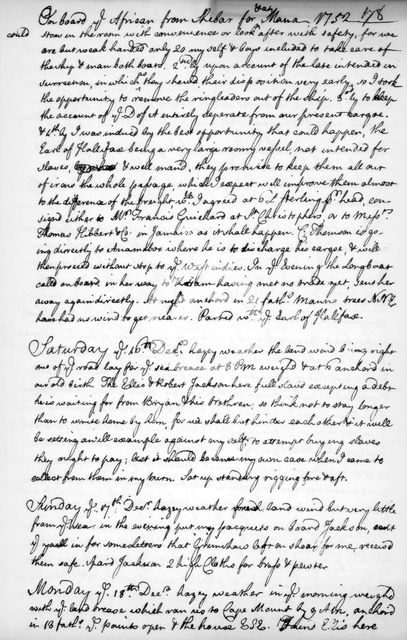 On board ye African from Shebar for Mana 1752 178
could stow in the room with convenience or look after with safety, for we
are but weak handed only 20 my self & boys included to take care of
the ship & man both boats. 2ndly upon account of the late intended in
surrection, in which they shewed their disposition very early, so I took
the opportunity to remove the ringleaders out of the ship. 3dly to keep
the account of ye D of S entirely seperate from our present cargoe.
& 4thly I was induced by the best opportunity that could happen, the
Earl of Hallifax being a very large roomy vessel, not intended for
slaves, & well mand, they promise to keep them all out
of irons the whole passage, which I expect will improve them almost
to the difference of the freight wch I agreed at 6£ sterling pr head, con
signed either to Mr Francis Guichard at St Christophers, or to Messrs
Thomas Hibbert & Co. in Jamaica as it shall happen. C. Thomson is go
ing directly to Anamaboe where he is to discharge his cargoe, & will
then proceed without stop to ye West indies. In ye Evening the Longboat
called on board in her way to having met no trade yet, sent her
away again directly. At night anchord in 21 fathms Manna trees N.
have had no wind to get nearer. Parted wth ye Earl of Halifax.
Saturday ye 16th Decr hazey weather the land wind being right
out of ye road lay for ye sea brease at 3 PM weighd & at 6 anchord in
our old birth. The Ellis & Robert Jackson here full slavd excepting a debt
he is waiting for from Bryan & his brethren, so think not to stay longer
than to write home by him, for we shall but hinder each other & it will
be setting an ill example against my self, to attempt buying slaves
they ought to pay; lest it should become my own case when I come to
collect from them in my turn. Set up standing rigging fore & aft.
Sunday ye 17th Decr hazey weather land wind but very little
from ye sea. in the evening put my pacquets on board Jackson, sent
ye yaull in for some letters that Grimshaw left on shear for me, receivd
them safe. Paid Jackson 2 bigh Cloths for brass & pewter
Monday ye 18th Decr hazey weather in ye morning weighd
with ye land brease which ran us to Cape Mount by 9 , anchord
in 13 fathms ye points open & the house ESE. Ellis here